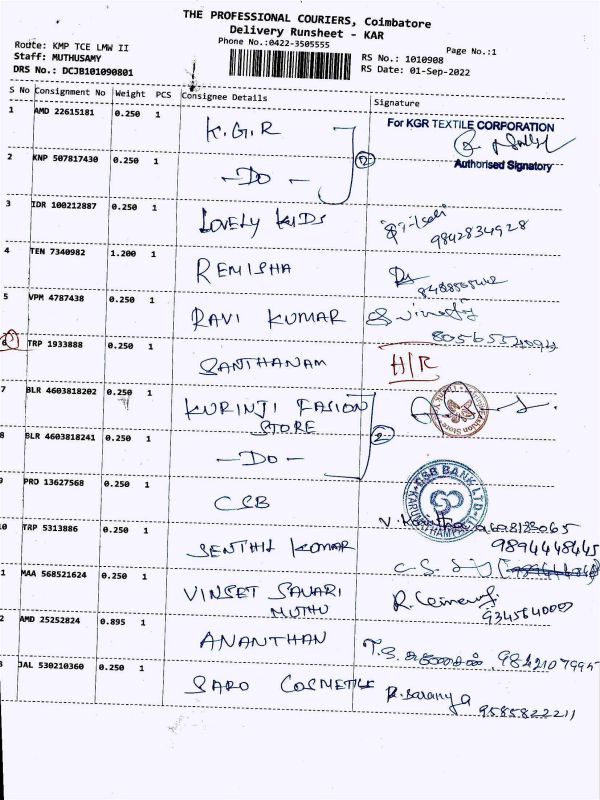 THE PROFESSIONAL COURIERS, Coimbatore
Delivery Runsheet - KAR
Phone No.:0422-3505555
Page No.:1
Route: KMP TCE LMW II
Staff: MUTHUSAMY
DRS No.: DCJB101090801
RS No.: 1010908
RS Date: 01-Sep-2022
S No Consignment No Weight PCS Consignee Details Signature
1 AMD 22615181 0.250 1 K.G.R For KGR TEXTILE CORPORATION
Authorised Signatory
2 KNP 507817430 0.250 1 -DO- 2
3 IDR 100212887 0.250 1 LOVELY KIDS 9842834928
4 TEN 7340982 1.200 1 REMISHA
5 VPM 4787438 0.250 1 RAVI KUMAR
6 TRP 1933888 0.250 1 SANTHANAM H/R
7 BLR 4603818202 0.250 1 KURINJI FASION
STORE
8 BLR 4603818241 0.250 1 -DO- 2
9 PRO 13627568 0.250 1 CSB CSB BANK LTD
10 TRP 5313886 0.250 1 SENTHIL KUMAR 9894448445
1 MAA 568521624 0.250 1 VINSET SAVARI
MUTHU 9345640009
2 AMD 25252824 0.895 1 ANANTHAN T.S. 9842107995
3 JAL 530210360 0.250 1 SARO COSMETICS R. Saranya
9585822211